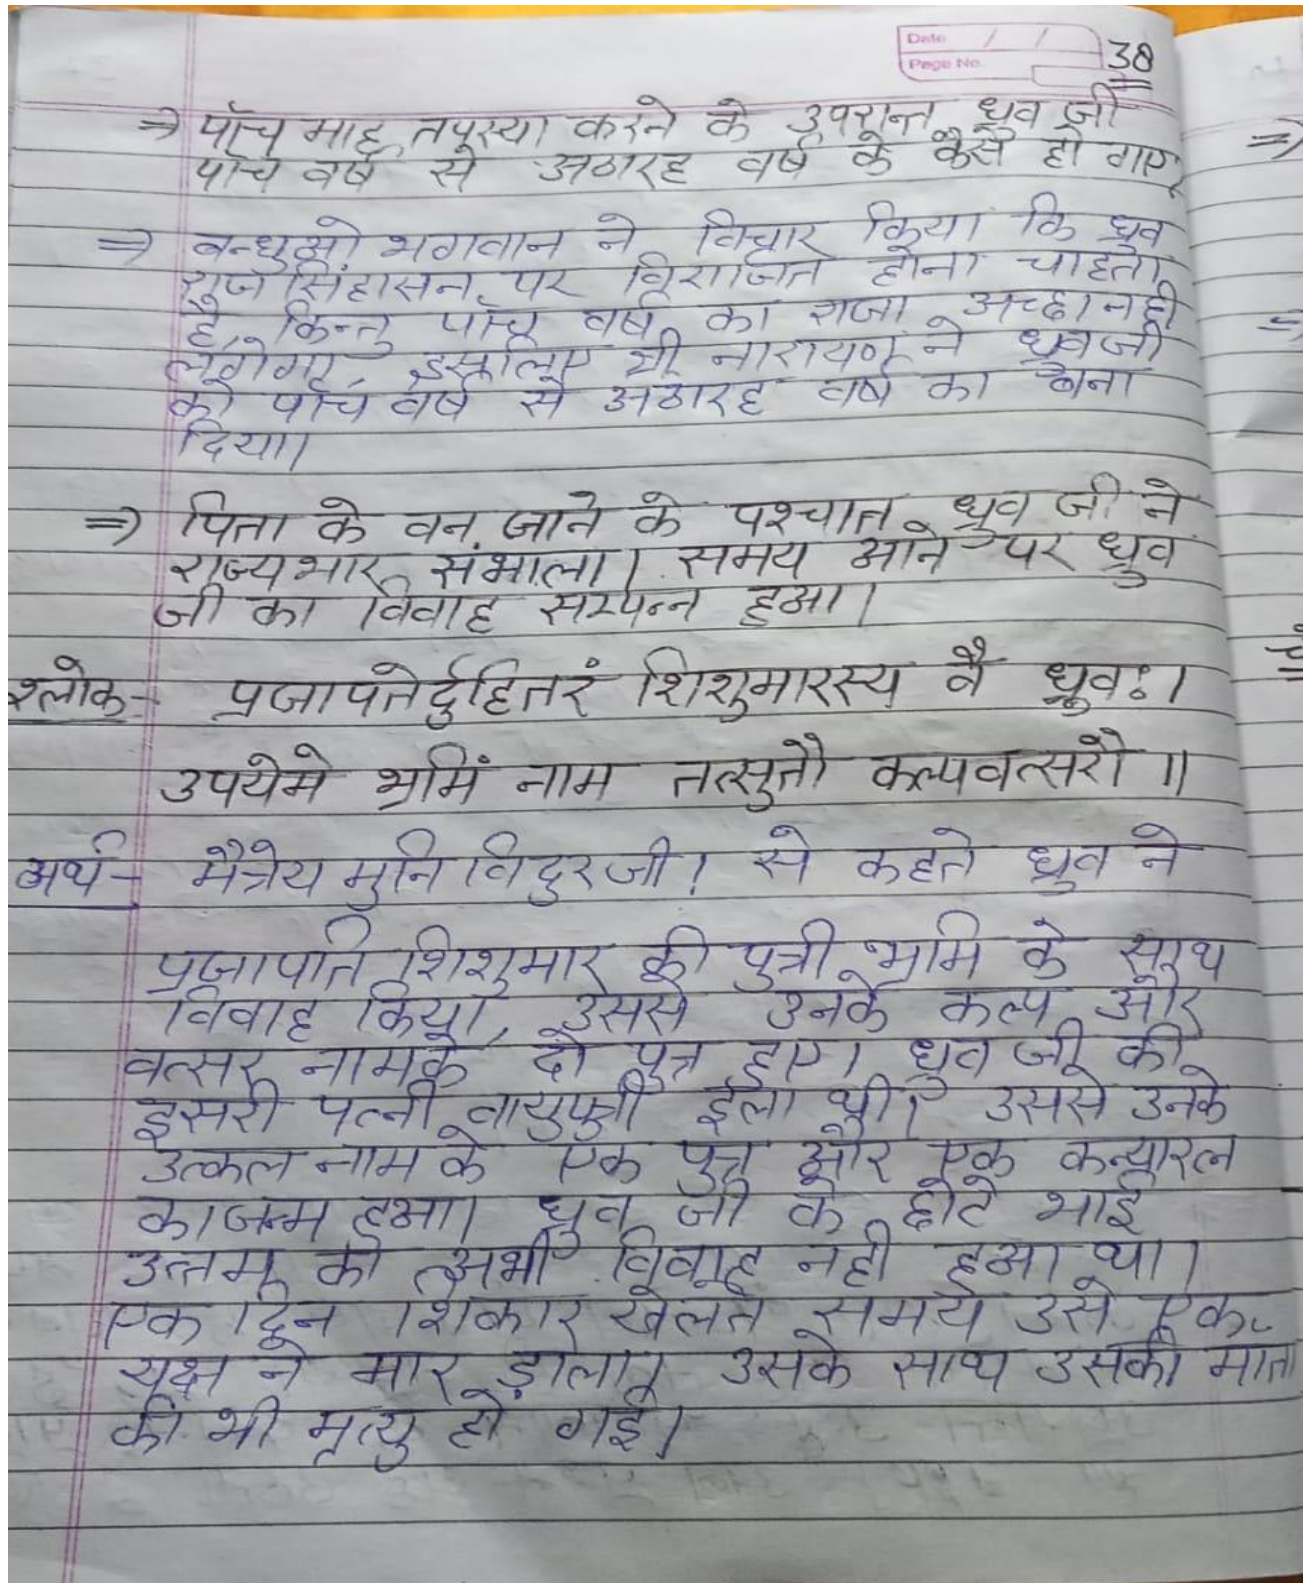 Date / /
Page No.
38
⇒ पाँच माह तपस्या करने के उपरान्त ध्रुव जी
पाँच वर्ष से अठारह वर्ष के कैसे हो गए,
⇒ बन्धुओ भगवान ने विचार किया कि ध्रुव
राज सिंहासन पर विराजित होना चाहता
है, किन्तु पाँच वर्ष का राजा अच्छा नही
लगेगा, इसलिए श्री नारायण ने ध्रुव जी
को पाँच वर्ष से अठारह वर्ष का बना
दिया।
⇒ पिता के वन जाने के पश्चात ध्रुव जी ने
राज्यभार संभाला। समय आने पर ध्रुव
जी का विवाह सम्पन्न हुआ।
श्लोक- प्रजापतेर्दुहितरं शिशुमारस्य वै ध्रुवः।
उपयेमे भ्रमिं नाम तत्सुतौ कल्पवत्सरौ ॥
अर्थ- मैत्रेय मुनि विदुर जी! से कहते ध्रुव ने
प्रजापति शिशुमार की पुत्री भ्रमि के साथ
विवाह किया, उससे उनके कल्प और
वत्सर नामके दो पुत्र हुए। ध्रुव जी की
दूसरी पत्नी वायुपुत्री ईला थी। उससे उनके
उत्कल नाम के एक पुत्र और एक कन्यारत्न
का जन्म हुआ। ध्रुव जी के छोटे भाई
उत्तम का अभी विवाह नही हुआ था।
एक दिन शिकार खेलते समय उसे एक
यक्ष ने मार ड़ाला। उसके साथ उसकी माता
की भी मृत्यु हो गई।